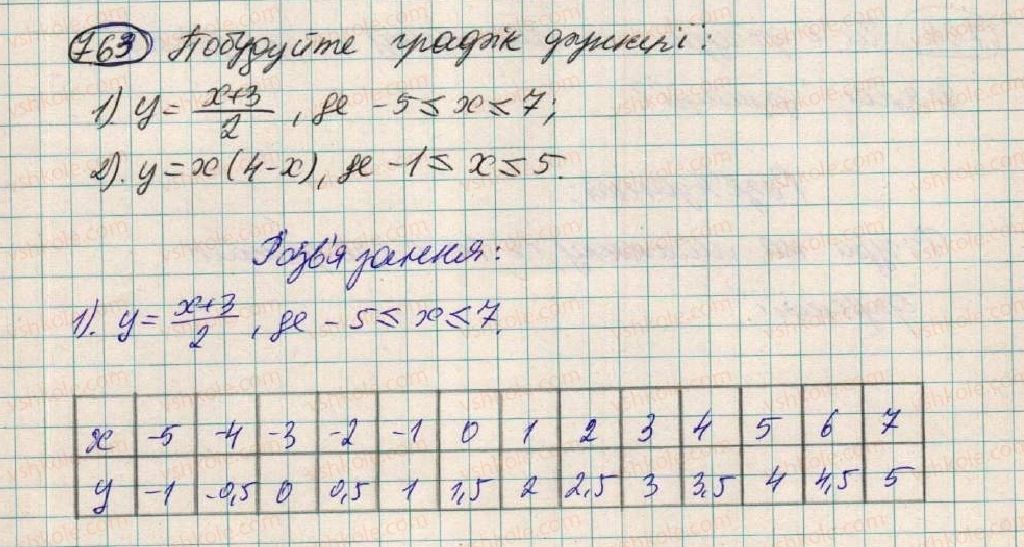 763 Побудуйте графік функції:
1) y = (x+3)/2, де -5 ≤ x ≤ 7;
2). y = x(4-x), де -1 ≤ x ≤ 5.
Розв'язання:
1). y = (x+3)/2, де -5 ≤ x ≤ 7.
x -5 -4 -3 -2 -1 0 1 2 3 4 5 6 7
y -1 -0,5 0 0,5 1 1,5 2 2,5 3 3,5 4 4,5 5